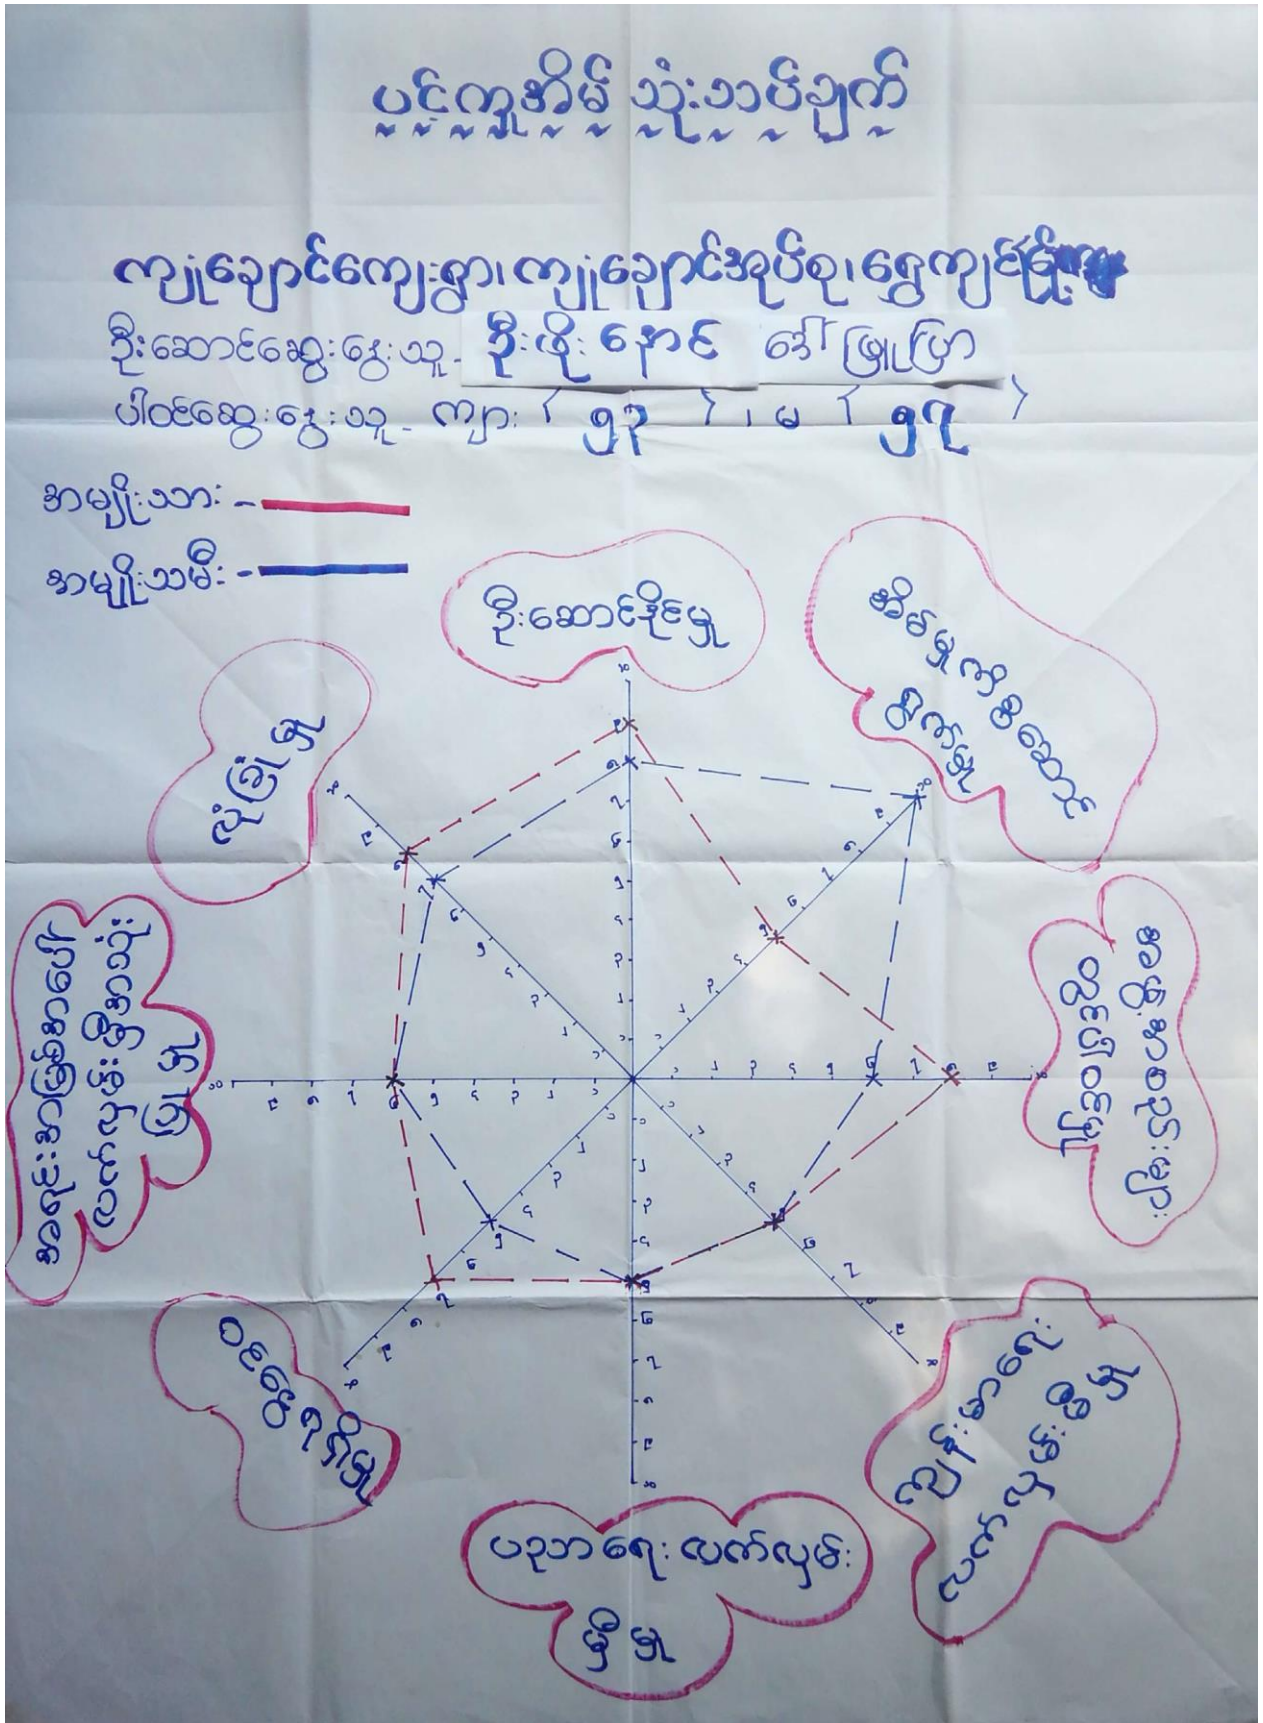 ပင့်ကူအိမ် သုံးသပ်ချက်
ကျုံချောင်ကျေးရွာ၊ ကျုံချောင်အုပ်စု၊ ရွှေကျင်မြို့
ဦးဆောင်ဆွေးနွေးသူ - ဦးဖိုးနောင် ဒေါ်ဖြူပြာ
ပါဝင်ဆွေးနွေးသူ - ကျား (၅၃)၊ မ (၅၇)
အမျိုးသား -
အမျိုးသမီး -
ဦးဆောင်နိုင်မှု
အိမ်မှုကိစ္စဆောင်
ရွက်မှု
အဖွဲ့အစည်းများ
တွင်ပါဝင်မှု
ကျန်းမာရေး
လက်လှမ်းမှီမှု
ပညာရေး လက်လှမ်း
မှီမှု
ဝင်ငွေ ရရှိမှု
အရင်းအမြစ်အပေါ်
လက်လှမ်းမှီအသုံး
ပြုမှု
လုံခြုံမှု